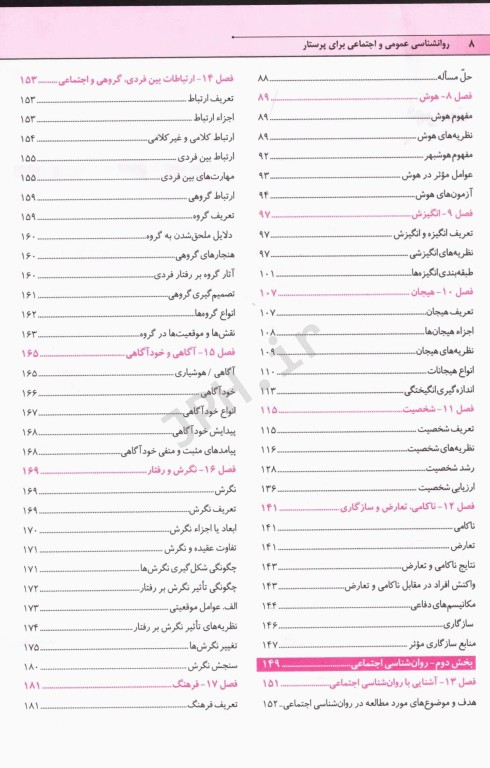 ۸ روانشناسی عمومی و اجتماعی برای پرستار
حلّ مسأله ۸۸
فصل ۸- هوش ۸۹
مفهوم هوش ۸۹
نظریه‌های هوش ۸۹
مفهوم هوشبهر ۹۲
عوامل مؤثر در هوش ۹۳
آزمون‌های هوش ۹۴
فصل ۹- انگیزش ۹۷
تعریف انگیزه و انگیزش ۹۷
نظریه‌های انگیزشی ۹۷
طبقه‌بندی انگیزه‌ها ۱۰۱
فصل ۱۰- هیجان ۱۰۷
تعریف هیجان ۱۰۷
اجزاء هیجان‌ها ۱۰۸
نظریه‌های هیجان ۱۰۹
انواع هیجانات ۱۱۰
اندازه‌گیری انگیختگی ۱۱۳
فصل ۱۱- شخصیت ۱۱۵
تعریف شخصیت ۱۱۵
نظریه‌های شخصیت ۱۱۶
رشد شخصیت ۱۲۸
ارزیابی شخصیت ۱۳۶
فصل ۱۲- ناکامی، تعارض و سازگاری ۱۴۱
ناکامی ۱۴۱
تعارض ۱۴۱
نتایج ناکامی و تعارض ۱۴۳
واکنش افراد در مقابل ناکامی و تعارض ۱۴۳
مکانیسم‌های دفاعی ۱۴۴
سازگاری ۱۴۶
منابع سازگاری مؤثر ۱۴۷
بخش دوم- روان‌شناسی اجتماعی ۱۴۹
فصل ۱۳- آشنایی با روان‌شناسی اجتماعی ۱۵۱
هدف و موضوع‌های مورد مطالعه در روان‌شناسی اجتماعی ۱۵۲
فصل ۱۴- ارتباطات بین فردی، گروهی و اجتماعی ۱۵۳
تعریف ارتباط ۱۵۳
اجزاء ارتباط ۱۵۳
ارتباط کلامی و غیرکلامی ۱۵۴
ارتباط بین فردی ۱۵۵
مهارت‌های بین فردی ۱۵۵
ارتباط گروهی ۱۵۹
تعریف گروه ۱۵۹
دلایل ملحق‌شدن به گروه ۱۶۰
هنجارهای گروهی ۱۶۰
آثار گروه بر رفتار فردی ۱۶۰
تصمیم‌گیری گروهی ۱۶۱
انواع گروه‌ها ۱۶۲
نقش‌ها و موقعیت‌ها در گروه ۱۶۳
فصل ۱۵- آگاهی و خودآگاهی ۱۶۵
آگاهی / هوشیاری ۱۶۵
خودآگاهی ۱۶۶
انواع خودآگاهی ۱۶۷
پیدایش خودآگاهی ۱۶۸
پیامدهای مثبت و منفی خودآگاهی ۱۶۸
فصل ۱۶- نگرش و رفتار ۱۶۹
نگرش ۱۶۹
تعریف نگرش ۱۶۹
ابعاد یا اجزاء نگرش ۱۷۰
تفاوت عقیده و نگرش ۱۷۱
چگونگی شکل‌گیری نگرش‌ها ۱۷۱
چگونگی تأثیر نگرش بر رفتار ۱۷۲
الف. عوامل موقعیتی ۱۷۳
نظریه‌های تأثیر نگرش بر رفتار ۱۷۴
تغییر نگرش‌ها ۱۷۵
سنجش نگرش ۱۸۰
فصل ۱۷- فرهنگ ۱۸۱
تعریف فرهنگ ۱۸۱
JPH.ir